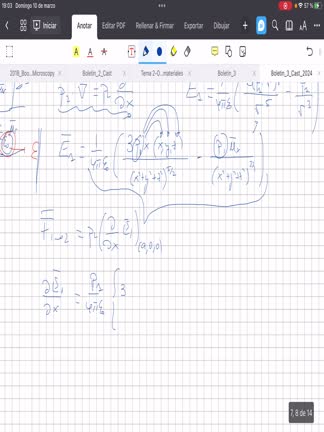 19:03 Domingo 10 de marzo
57 %
Iniciar Anotar Editar PDF Rellenar & Firmar Exportar Dibujar
2018_Boo...Microscopy Boletin_2_Cast Tema 2-D...materiales Boletin_3 Boletin_3_Cast_2024
p₂ ∇̄ = p₂ ∂/∂x
Ē₁ = 1/4πε
Ē₁ = 1/4πε ( 3p₁x (x,y,z) / (x²+y²+z²)^5/2 - p₁ ū / (x²+y²+z²)^3/2 )
F̄₁→₂ = p₂ ( ∂/∂x Ē₁ )(a,0,0)
∂Ē₁/∂x = p₁/4πε { 3
7, 8 de 14